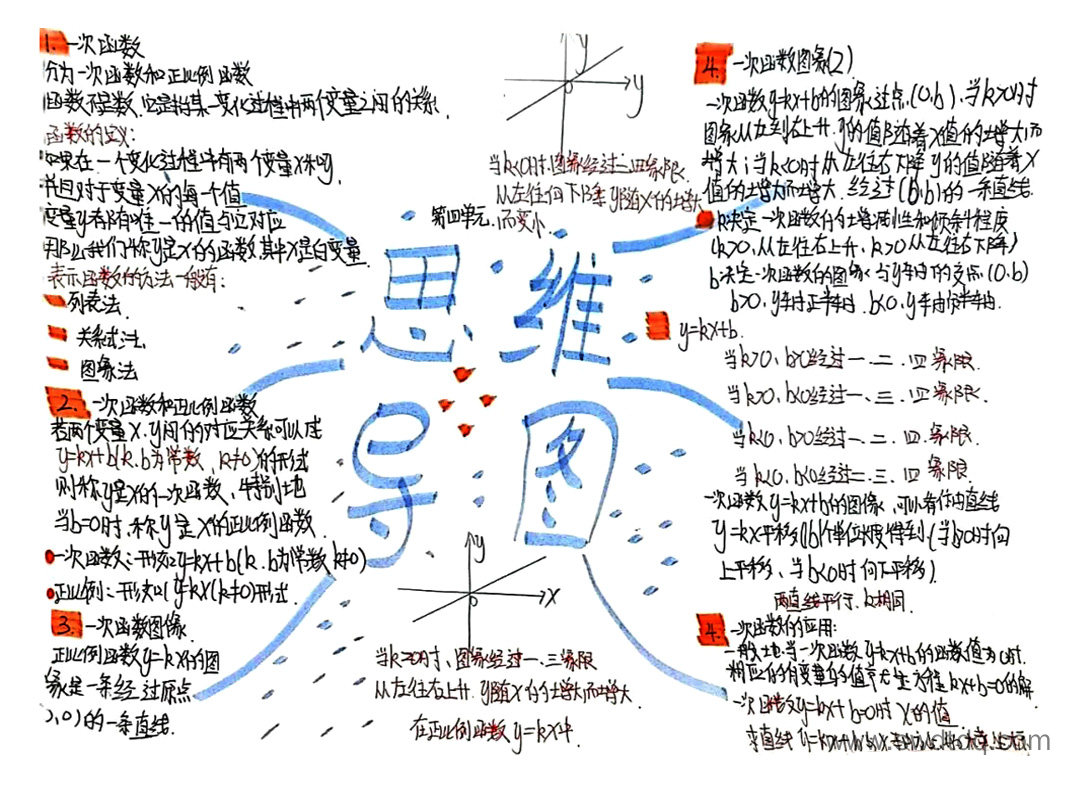 1. 一次函数
分为一次函数和正比例函数
函数不是数,它是指某一变化过程中两个变量之间的关系
函数的定义:
如果在一个变化过程中有两个变量X和y,
并且对于变量X的每一个值
变量y都有唯一的值与它对应
那么我们称y是X的函数,其中X是自变量
表示函数的方法一般有:
列表法
关系式法
图象法
2. 一次函数和正比例函数
若两个变量X、y间的对应关系可以
y=kx+b(k、b为常数、k≠0)的形式
则称y是X的一次函数、特别地
当b=0时,称y是X的正比例函数
一次函数:形如y=kx+b(k、b为常数k≠0)
正比例:形如(y=kx(k≠0)形式
3. 一次函数图像
正比例函数y=kx的图
象是一条经过原点
,0)的一条直线
y
y
0
当k<0时,图象经过二四象限
从左往右下降y随X的增大
而变小
第四单元
思维
导图
y
X
0
当k>0时、图象经过一、三象限
从左往右上升、y随X的增大而增大
在正比例函数y=kx中
4. 一次函数图象(2)
一次函数y=kx+b的图象过点(0,b),当k>0时
图象从左到右上升,y的值随着X值的增大而
增大;当k<0时从左往右下降y的值随着X
值的增大而增大、经过(b,b)的一条直线
k决定一次函数的增减性和倾斜程度
(k>0,从左往右上升,k>0从左往右下降)
b决定一次函数的图象与y车由的交点(0,b)
b>0,y车由正半车由,b<0,y车由负半车由.
y=kx+b.
当k>0、b>0经过一、二、四象限
当k>0、b<0经过一、三、四象限
当k<0、b>0经过一、二、四、象限
当k<0、b<0经过二、三、四象限
一次函数y=kx+b的图像、可以看作由直线
y=kx平移|b|个单位长度得到(当b>0时向
上平移、当b<0时向下平移)
两直线平行、k相同
4. 一次函数的应用:
一般地当一次函数y=kx+b的函数值为0时
相应的自变量的值 方程kx+b=0的解
一次函数y=kx+b=0时X的值
求直线y=kx+b与X